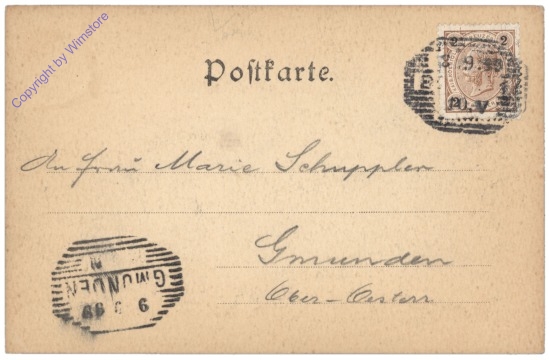 Copyright by Wimstore
Postkarte.
An Frau Marie Schuppler
Gmunden
Ober-Oesterr
GMUNDEN